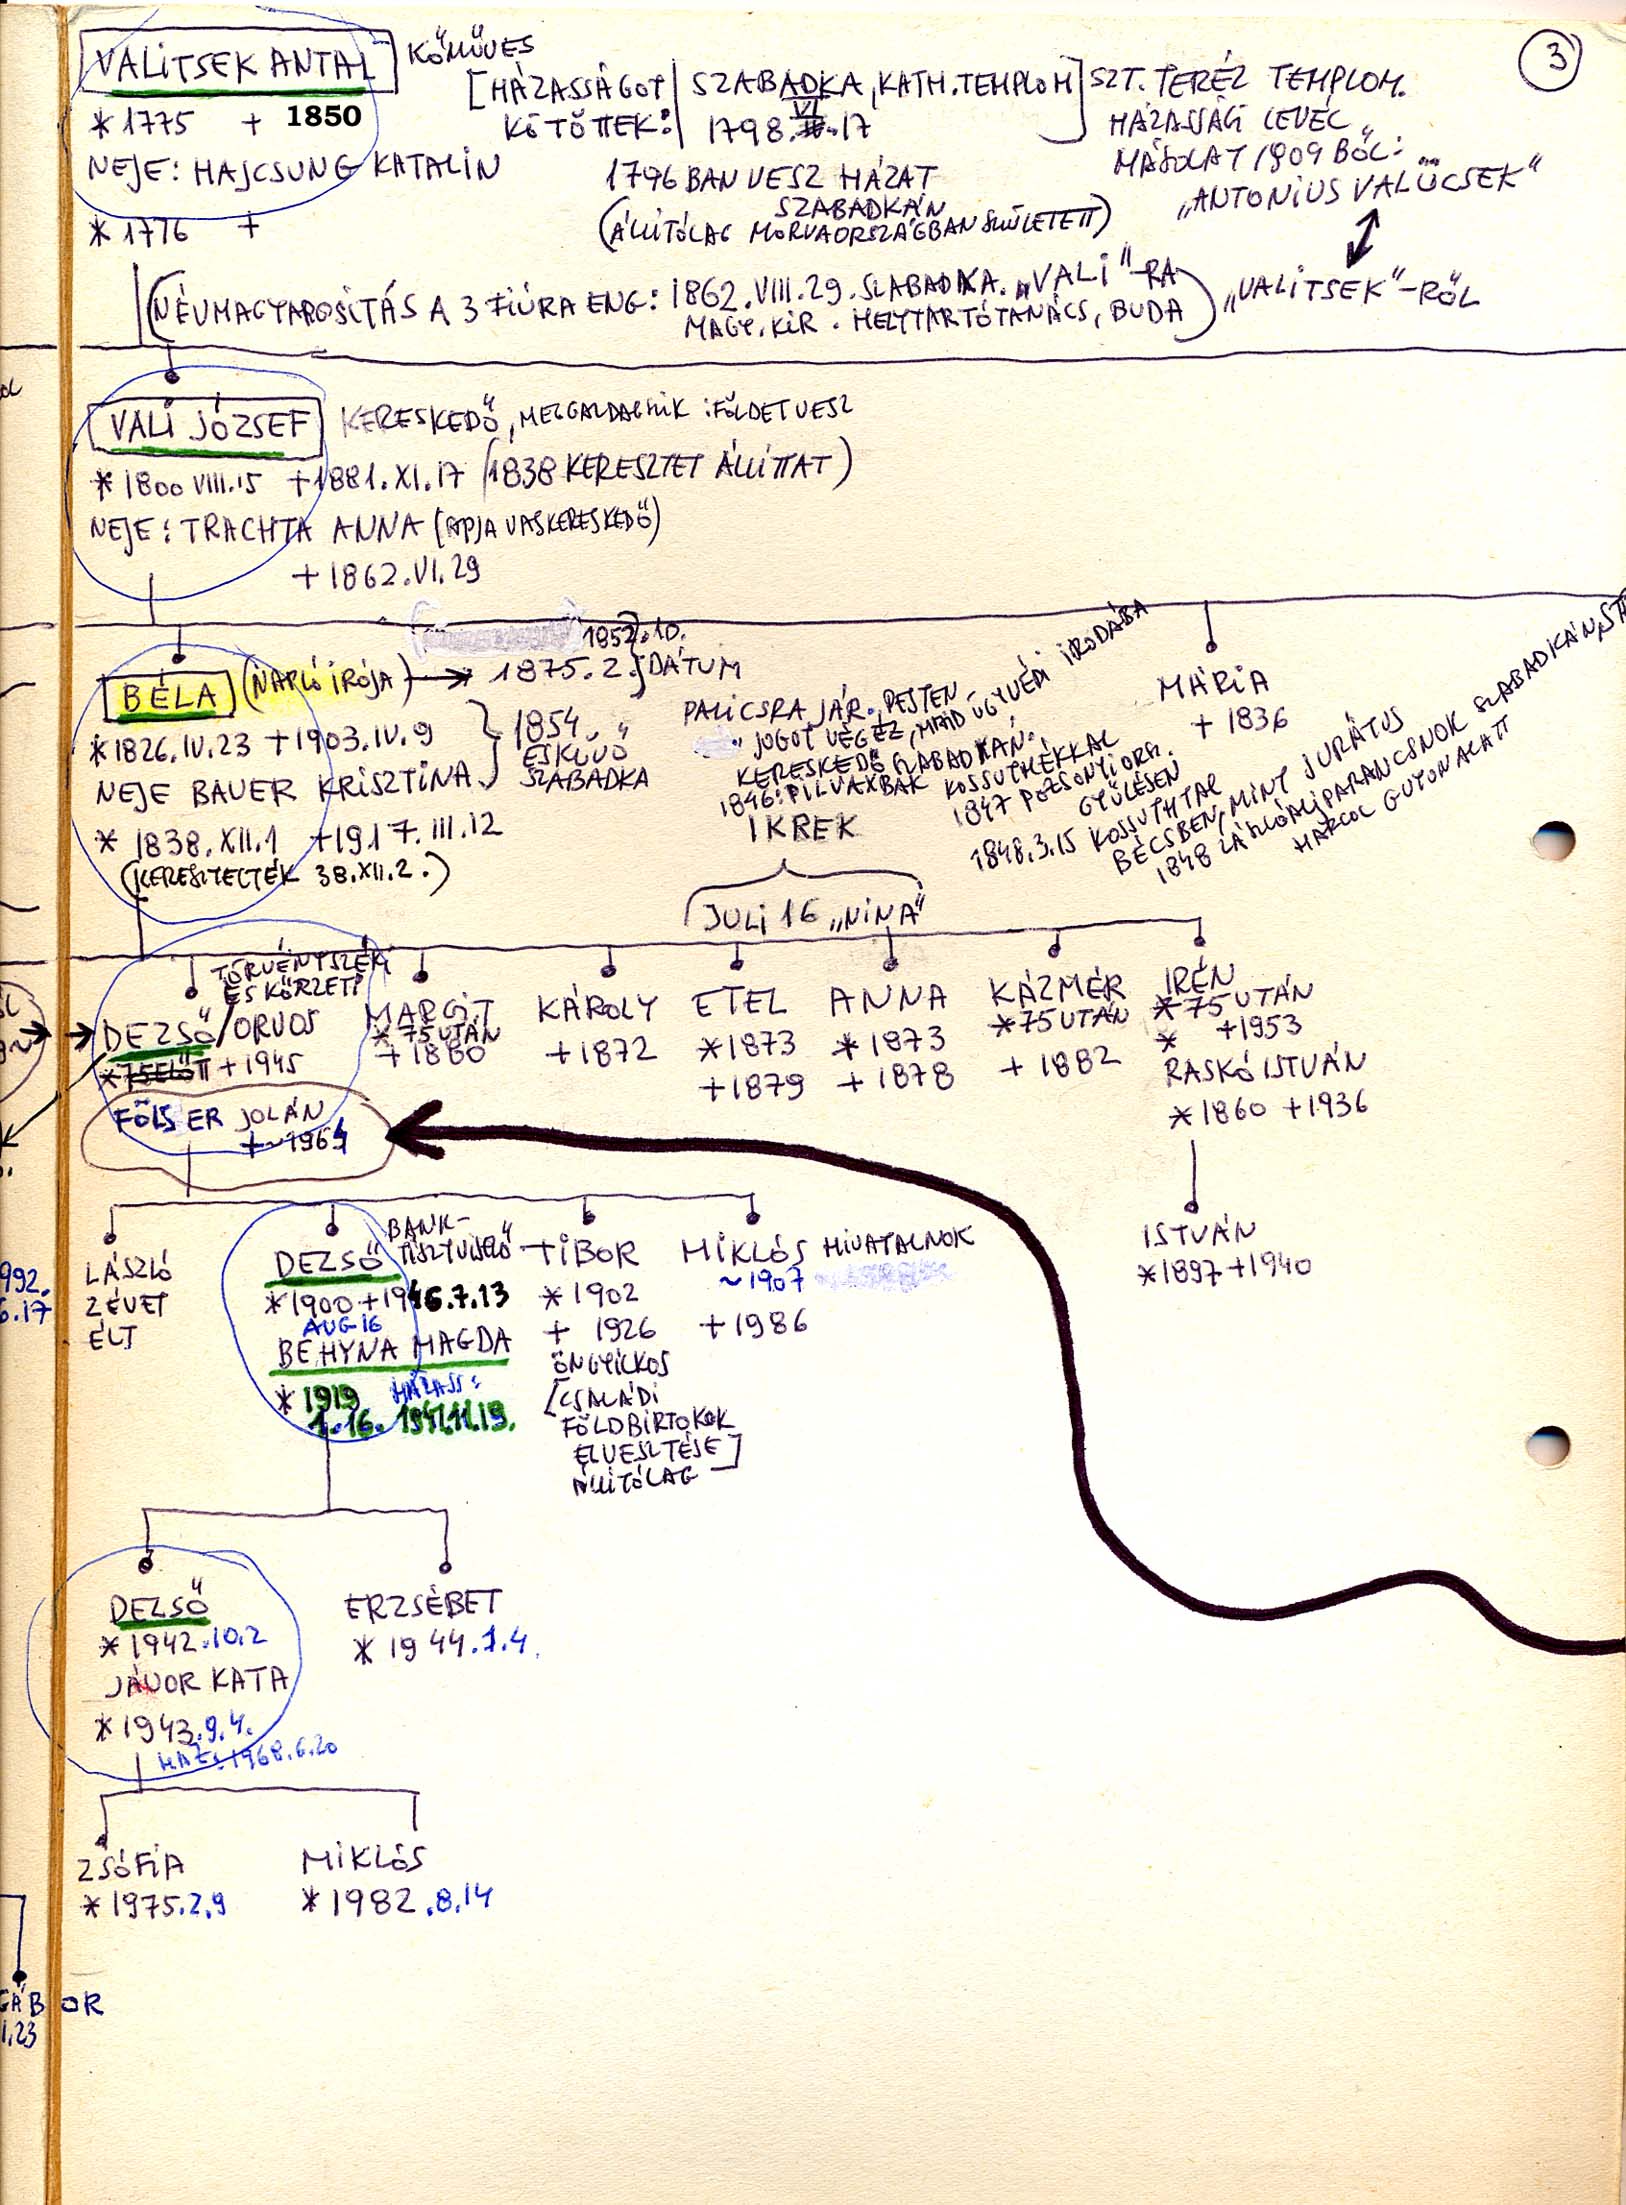 3
VALITSEK ANTAL
KŐMŰVES
* 1775 + 1850
NEJE: HAJCSUNG KATALIN
* 1776 +
[HÁZASSÁGOT
KÖTÖTTEK:
SZABADKA, KATH. TEMPLOM]
1798. VI. 17
SZT. TERÉZ TEMPLOM.
HÁZASSÁG LEVÉL
MÁSOLAT 1909 BŐL:
„ANTONIUS VALÜCSEK"
1796 BAN VESZ HÁZAT
SZABADKÁN
(ÁLLÍTÓLAG MORVAORSZÁGBAN SZÜLETETT)
(NÉVMAGYAROSÍTÁS A 3 FIÚRA ENG: 1862. VIII. 29. SZABADKA. „VALI"-RA
MAGY. KIR. HELYTARTÓTANÁCS, BUDA)
„VALITSEK"-RŐL
VALI JÓZSEF
KERESKEDŐ, MEGGAZDAGSZIK: FÖLDET VESZ
* 1800 VIII. 15 + 1881. XI. 17 (1838 KERESZTET ÁLLÍTTAT)
NEJE: TRACHTA ANNA (APJA VASKERESKEDŐ)
+ 1862. VI. 29
BÉLA (NAPLÓ ÍRÓJA) → 1852. 10.
1875. 2. } DÁTUM
* 1826. IV. 23 + 1903. IV. 9
NEJE BAUER KRISZTINA
* 1838. XII. 1 + 1917. III. 12
(KERESZTELTÉK 38. XII. 2.)
1854.
ESKÜVŐ
SZABADKA
PALICSRA JÁR. PESTEN
JOGOT VÉGEZ, MAJD ÜGYVÉDI IRODÁBA
KERESKEDŐ SZABADKÁN.
1846: PILVAXBAK KOSSUTHÉKKAL
1847 POZSONYI ORSZ.
GYŰLÉSEN
1848. 3. 15 KOSSUTHTAL
BÉCSBEN, MINT JURÁTUS
1848 ZÁSZLÓALJPARANCSNOK SZABADKÁN,
HARCOL GUYON ALATT
MÁRIA
+ 1836
IKREK
JULI 16 „NINA"
TÖRVÉNYSZÉKI
ÉS KÖRZETI
DEZSŐ / ORVOS
* 75 ELŐTT + 1945
FÖLSER JOLÁN
+ ~1964
MARGIT
* 75 UTÁN
+ 1880
KÁROLY
+ 1872
ETEL
* 1873
+ 1879
ANNA
* 1873
+ 1878
KÁZMÉR
* 75 UTÁN
+ 1882
IRÉN
* 75 UTÁN
* + 1953
RASKÓ ISTVÁN
* 1860 + 1936
LÁSZLÓ
2 ÉVET
ÉLT
DEZSŐ
BANK-
TISZTVISELŐ
* 1900 + 1946.7.13
AUG 16
BEHYNA MAGDA
* 1919
1.16.
HÁZASS:
1941.11.19.
TIBOR
* 1902
+ 1926
ÖNGYILKOS
[CSALÁDI
FÖLDBIRTOKOK
ELVESZTÉSE]
ÁLLÍTÓLAG
MIKLÓS HIVATALNOK
~1907
+ 1986
ISTVÁN
* 1897 + 1940
992.
6.17
DEZSŐ
* 1942.10.2
JÁVOR KATA
* 1943.9.4.
HÁZ: 1968.6.20
ERZSÉBET
* 1944.1.4.
ZSÓFIA
* 1975.2.9
MIKLÓS
* 1982.8.14
GÁBOR
1.23